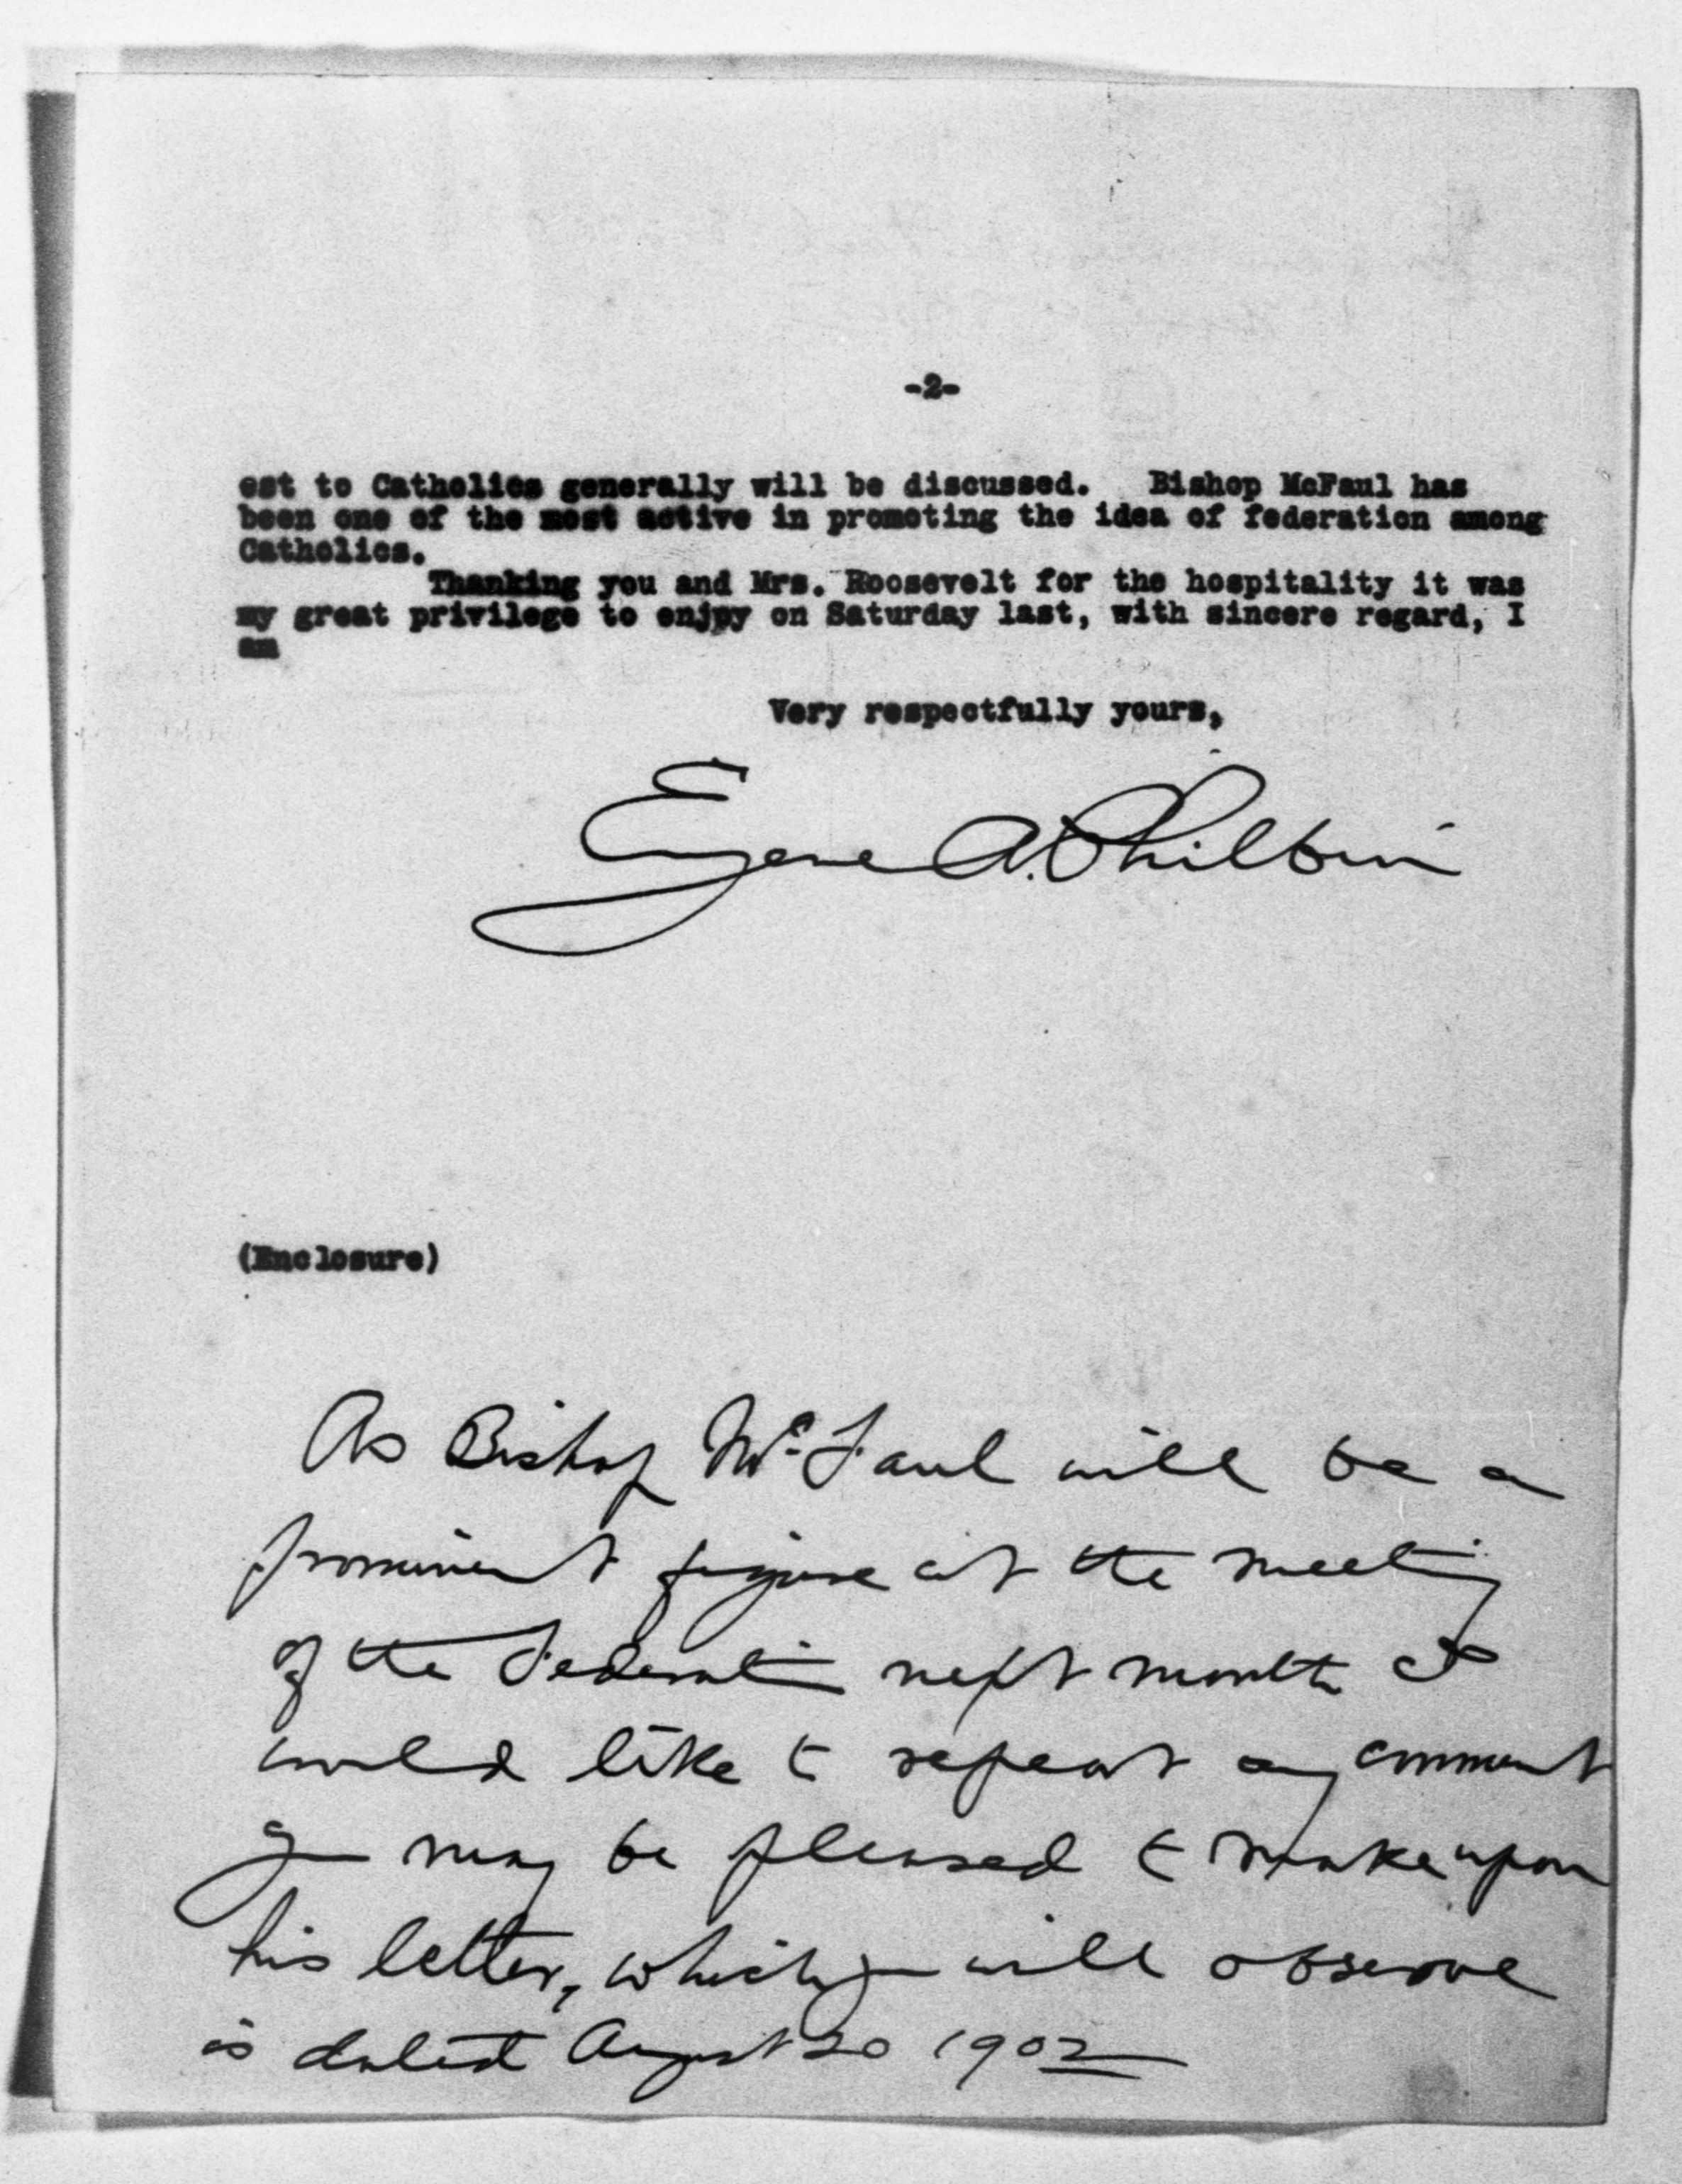 -2-
est to Catholics generally will be discussed. Bishop McFaul has
been one of the most active in promoting the idea of federation among
Catholics.
Thanking you and Mrs. Roosevelt for the hospitality it was
my great privilege to enjoy on Saturday last, with sincere regard, I
am
Very respectfully yours,
Eugene A. Philbin
(Enclosure)
As Bishop McFaul will be a
prominent figure at the meeting
of the Federation next month I
would like to repeat any comment
you may be pleased to make upon
his letter, which you will observe
is dated August 20 1902